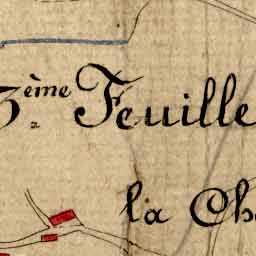 3.ème Feuille
la Ch